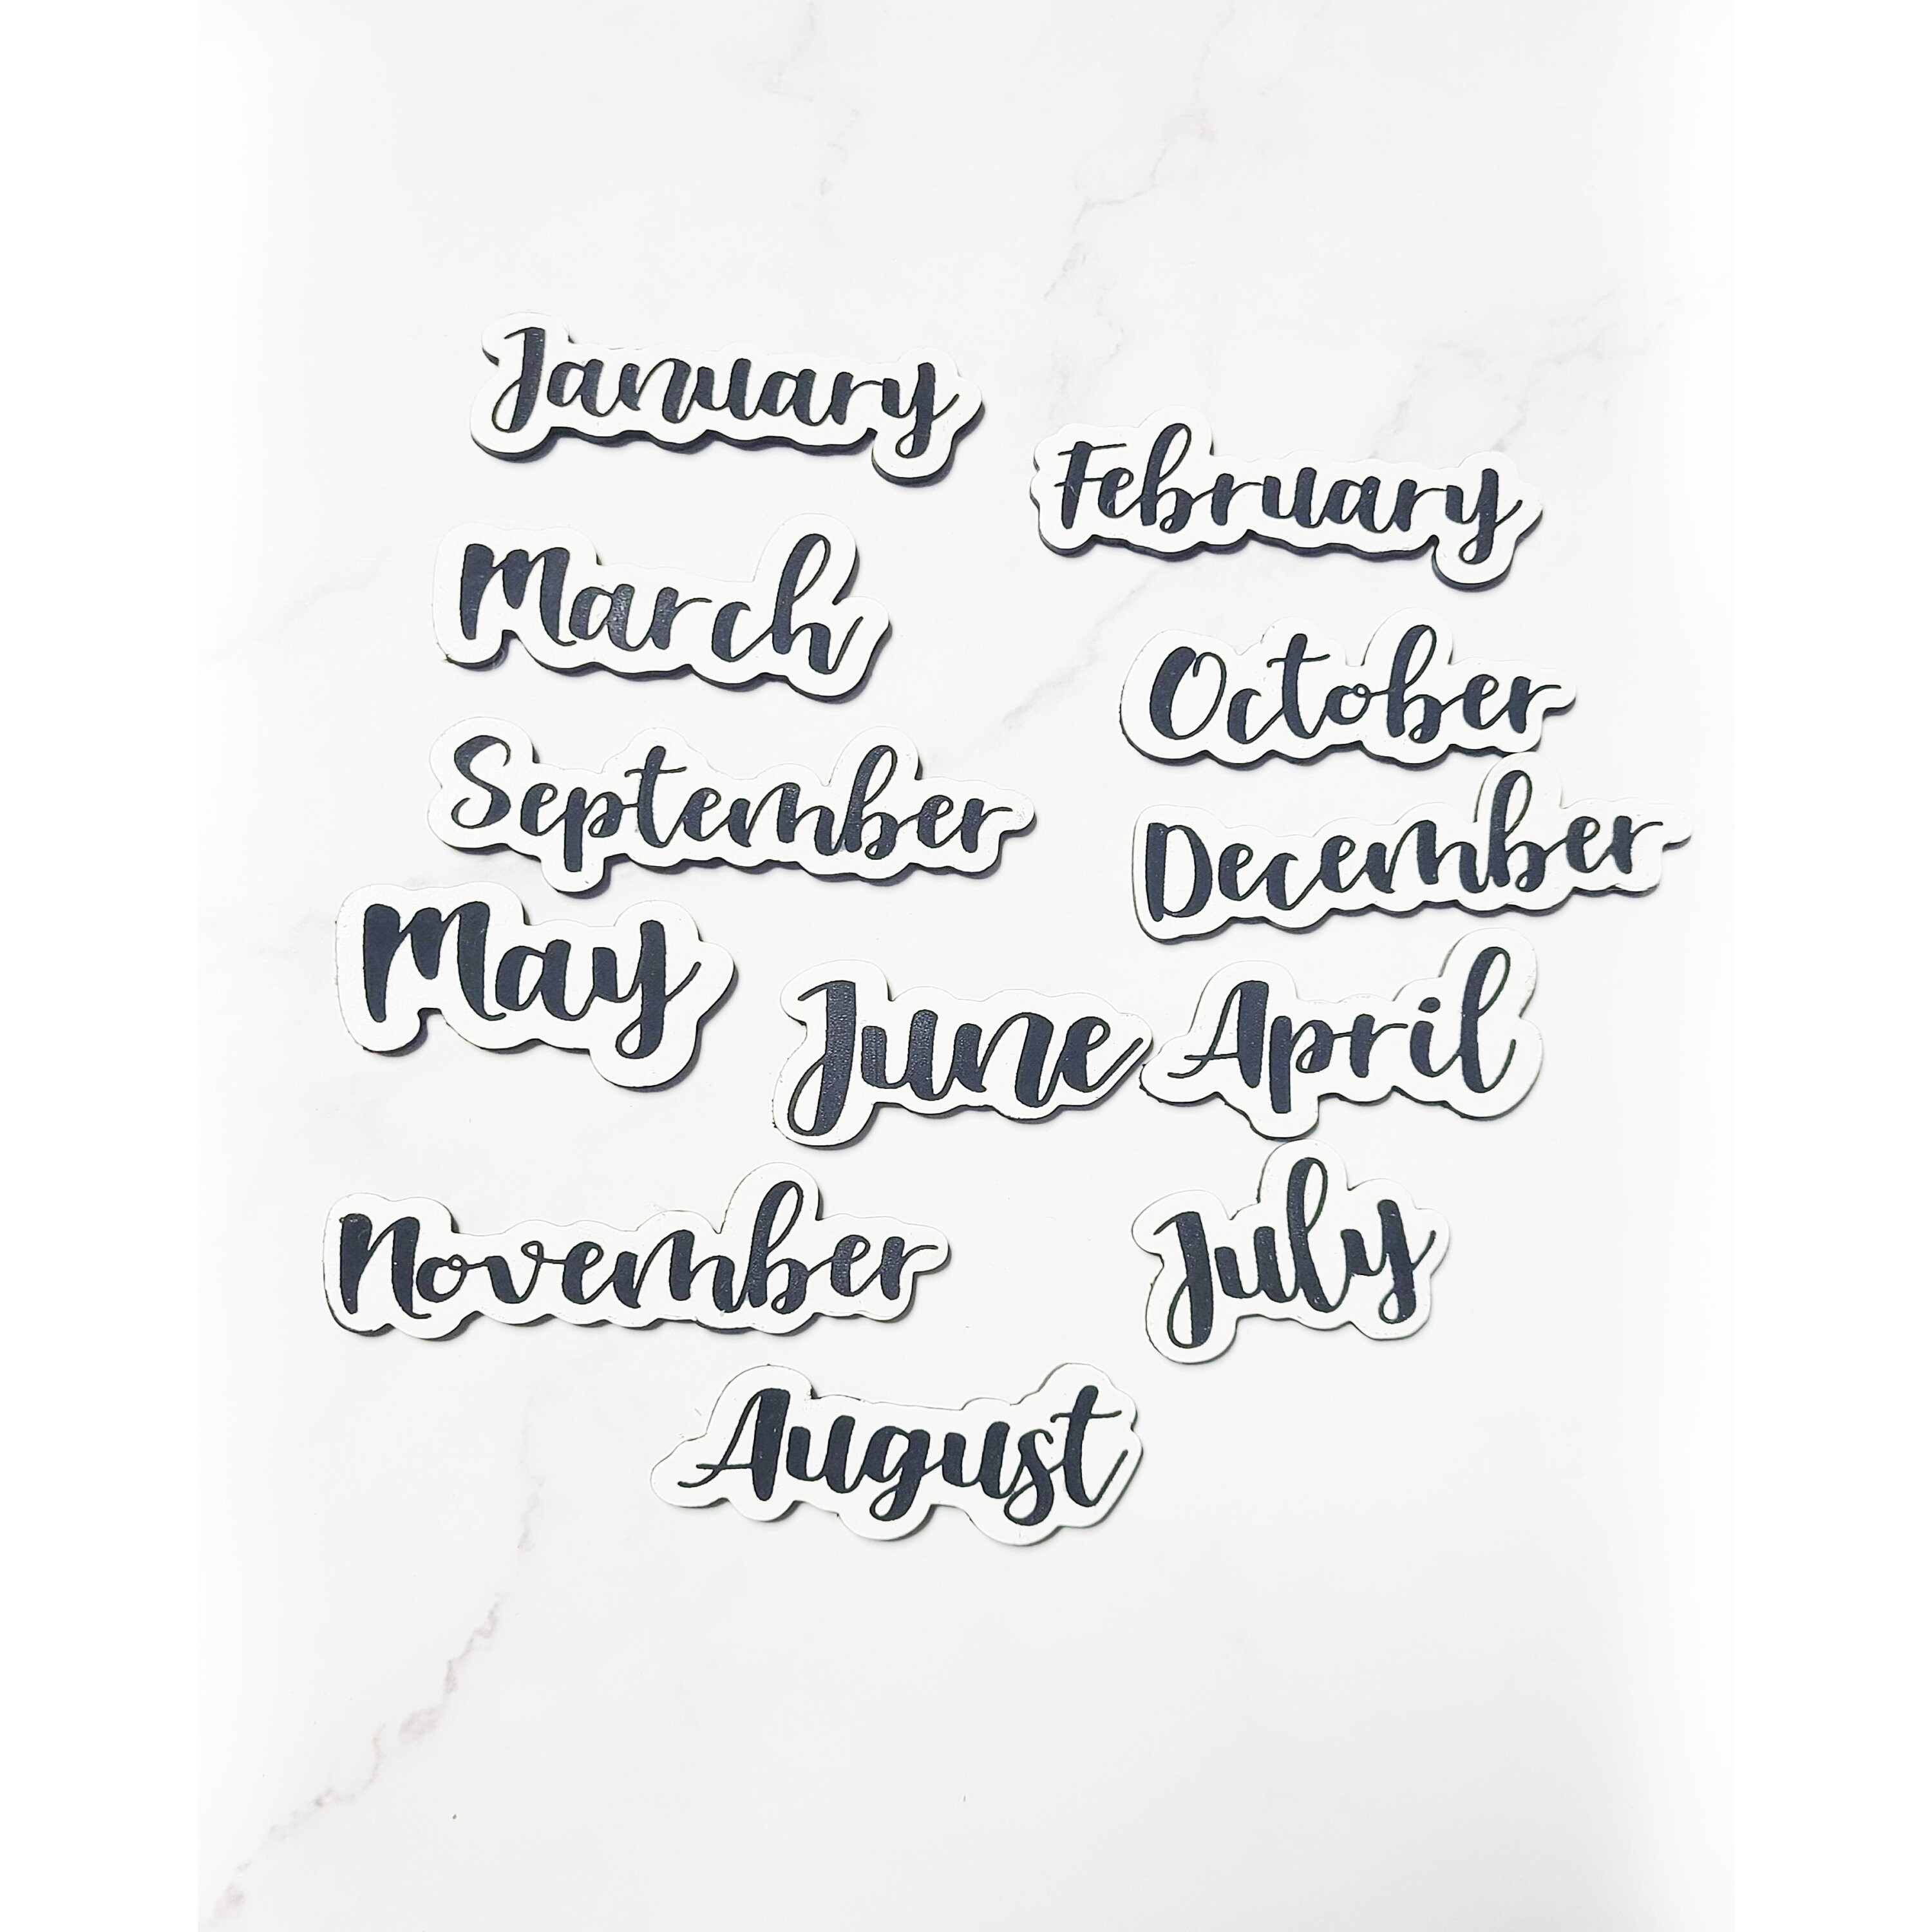 January
February
March
October
September
December
May
June
April
November
July
August